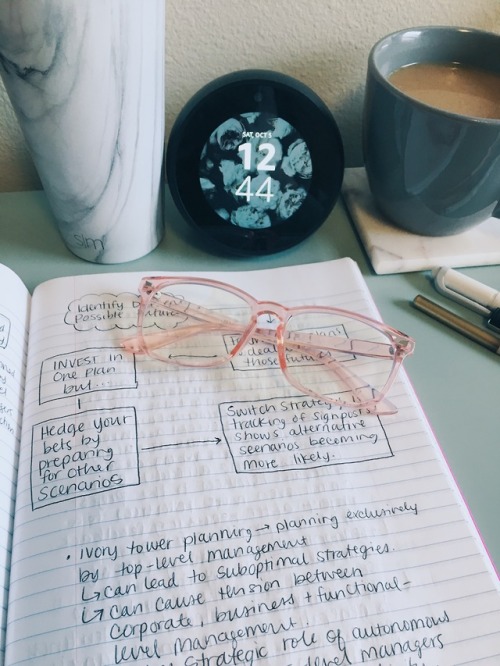 SAT, OCT 5
12
44
sim
Identify
Possible
INVEST in
One Plan
but...
those futures
Hedge your
bets by
preparing
for other
scenarios
Switch Strategies if
tracking of signposts
shows alternative
scenarios becoming
more likely.
• Ivory tower planning → planning exclusively
by top-level management
↳ can lead to suboptimal strategies.
↳ can cause tension between
corporate, business + functional-
level management.
strategic role of autonomous
level managers